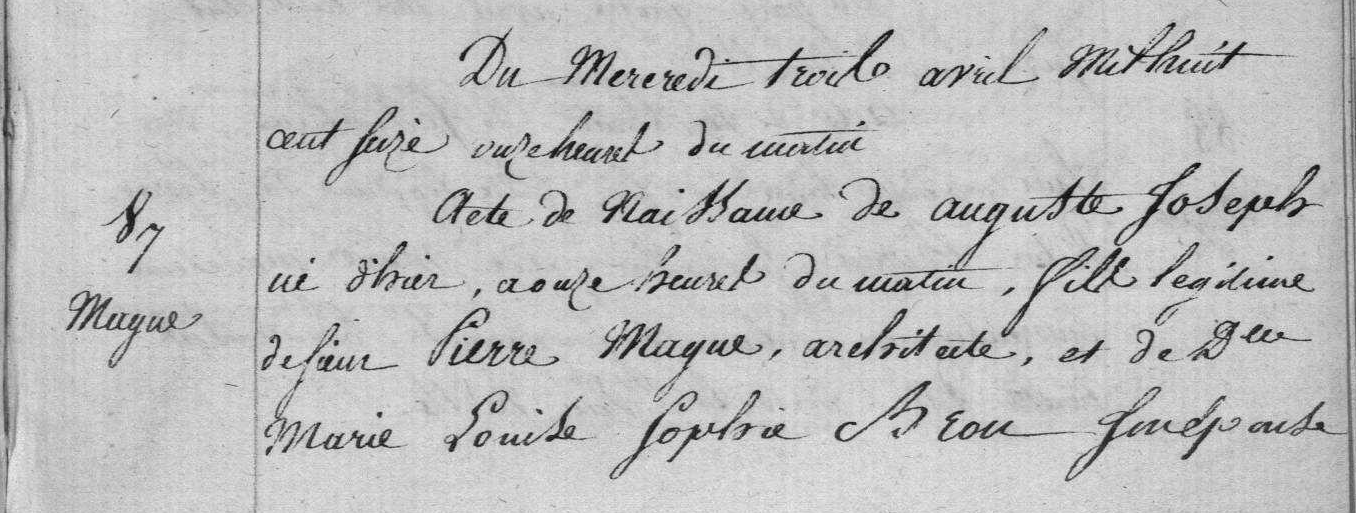 Du Mercredi trois avril Mil huit
cent seize onze heures du matin
87
Acte de Naissance de auguste Joseph
né d'hier, a onze heures du matin, fils legitime
Magne
de sieur Pierre Magne, architecte, et de Dme
Marie Louise Sophie Breon son épouse